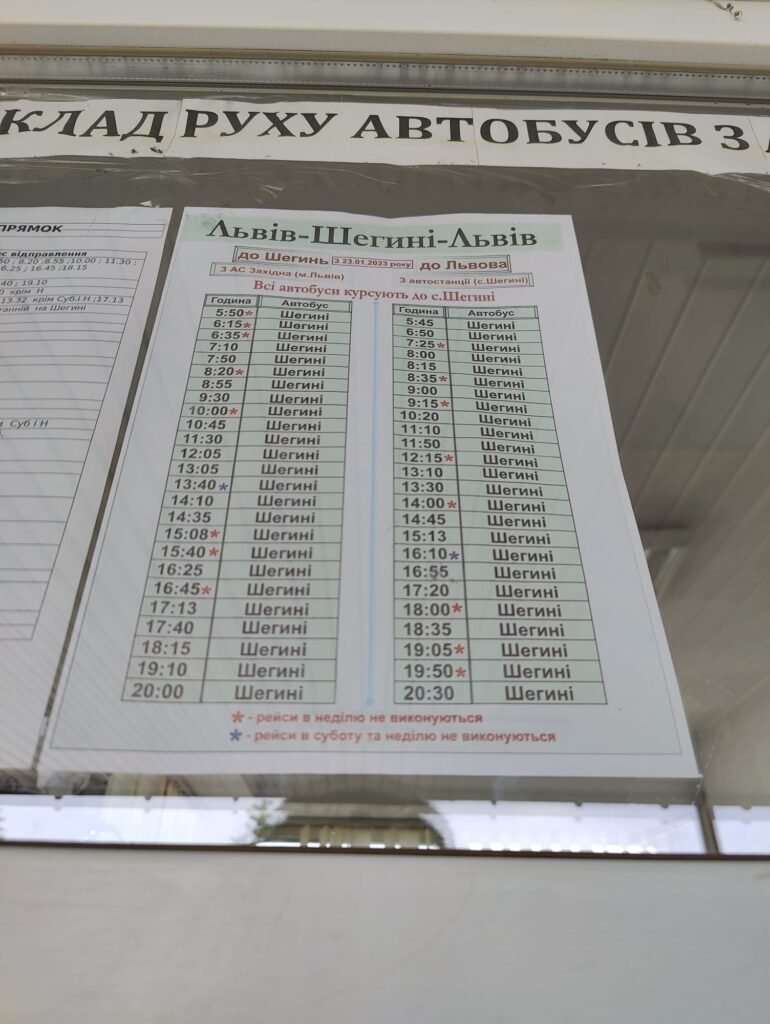 КЛАД РУХУ АВТОБУСІВ З
ПРЯМОК
відправлення
50 ; 8.20 ;8.55 ;10.00 ; 11.30 ;
6.25 ; 16.45 ;18.15
40 ; 19.10
крім Н
13.32 крім Суб.і Н ;17.13
на Шегині
Суб і Н
Львів-Шегині-Львів
до Шегинь З 23.01.2023 року до Львова
З АС Західна (м.Львів) З автостанції (с.Шегині)
Всі автобуси курсують до с.Шегині
Година Автобус Година Автобус
5:50* Шегині 5:45 Шегині
6:15* Шегині 6:50 Шегині
6:35* Шегині 7:25* Шегині
7:10 Шегині 8:00 Шегині
7:50 Шегині 8:15 Шегині
8:20* Шегині 8:35* Шегині
8:55 Шегині 9:00 Шегині
9:30 Шегині 9:15* Шегині
10:00* Шегині 10:20 Шегині
10:45 Шегині 11:10 Шегині
11:30 Шегині 11:50 Шегині
12:05 Шегині 12:15* Шегині
13:05 Шегині 13:10 Шегині
13:40* Шегині 13:30 Шегині
14:10 Шегині 14:00* Шегині
14:35 Шегині 14:45 Шегині
15:08* Шегині 15:13 Шегині
15:40* Шегині 16:10* Шегині
16:25 Шегині 16:55 Шегині
16:45* Шегині 17:20 Шегині
17:13 Шегині 18:00* Шегині
17:40 Шегині 18:35 Шегині
18:15 Шегині 19:05* Шегині
19:10 Шегині 19:50* Шегині
20:00 Шегині 20:30 Шегині
* - рейси в неділю не виконуються
* - рейси в суботу та неділю не виконуються